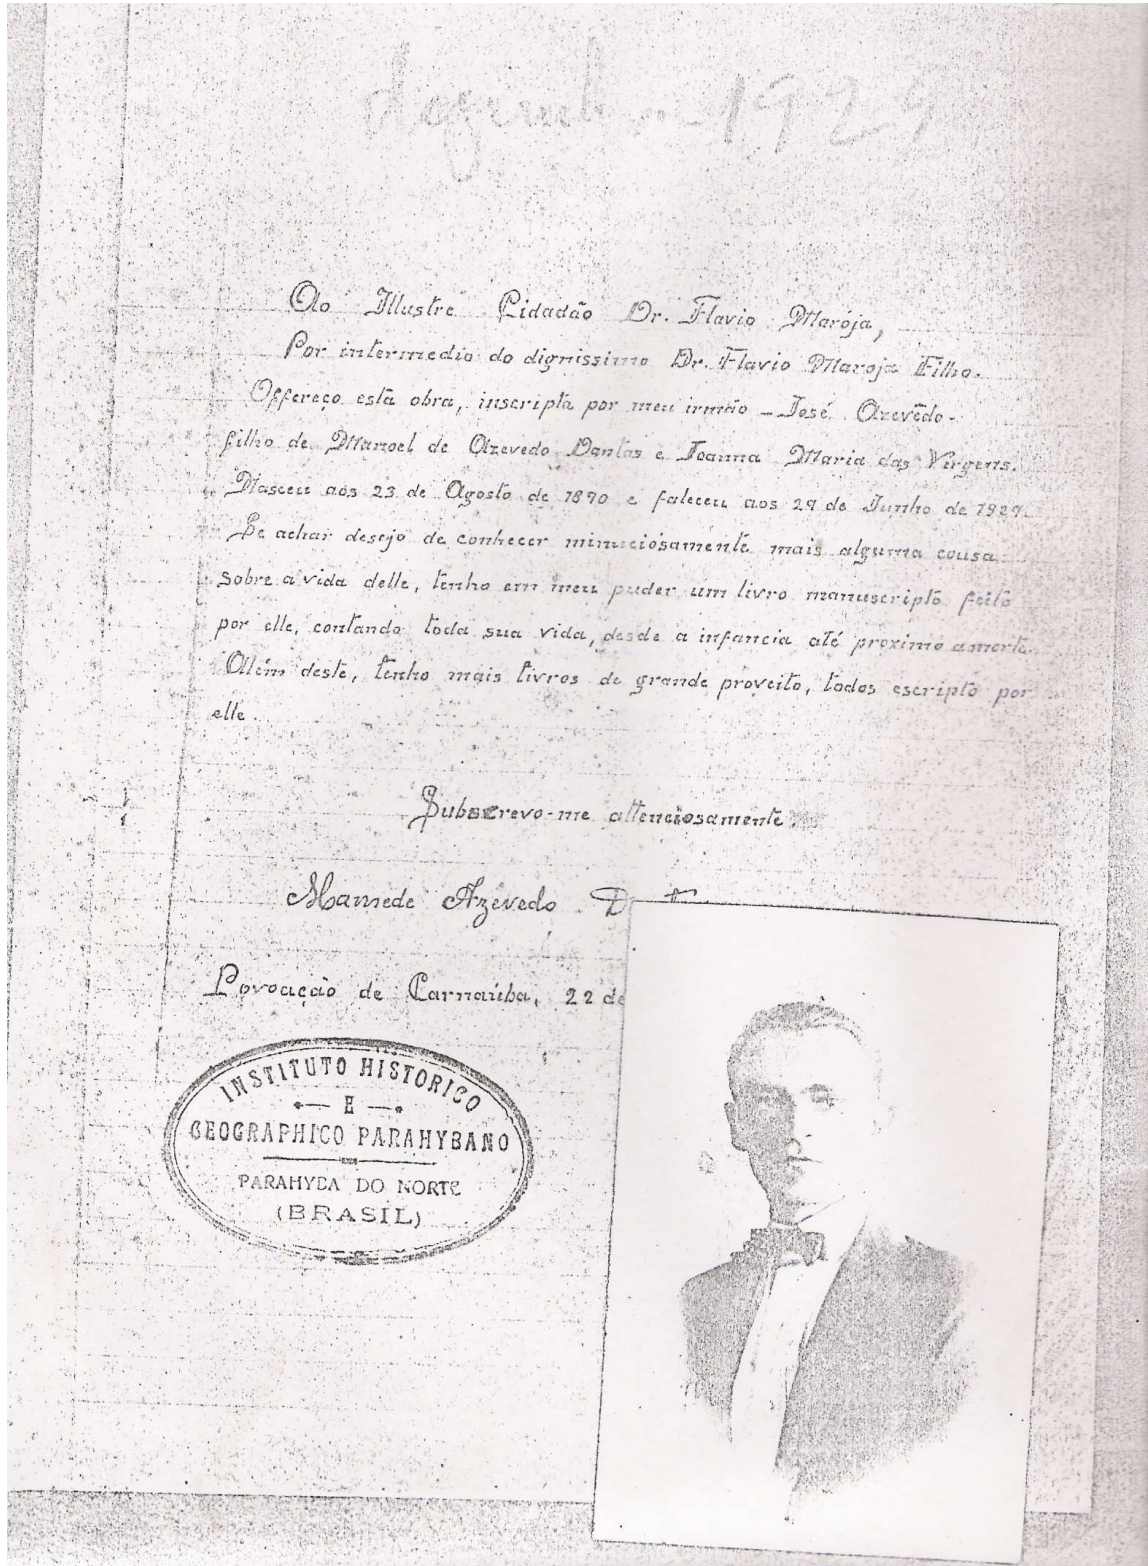 1929
Ao Illustre Cidadão Dr. Flavio Marója,
Por intermedio do dignissimo Dr. Flavio Maroja Filho.
Offereço esta obra, inscripta por meu irmão - José Azevêdo -
filho de Manoel de Azevedo Dantas e Joanna Maria das Virgens.
Nasceu aos 23 de Agosto de 1890 e faleceu aos de Junho de
Se achar desejo de conhecer minuciosamente mais alguma cousa
sobre a vida delle, tenho em meu puder um livro manuscripto feito
por elle, contando toda sua vida, desde a infancia até proximo a morte.
Além deste, tenho mais livros de grande proveito, todos escripto por
elle.
Subscrevo-me attenciosamente.
Mamede Azevedo
Povoação de Carnaúba, 22 de
INSTITUTO HISTORICO
E
GEOGRAPHICO PARAHYBANO
PARAHYBA DO NORTE
(BRASIL)